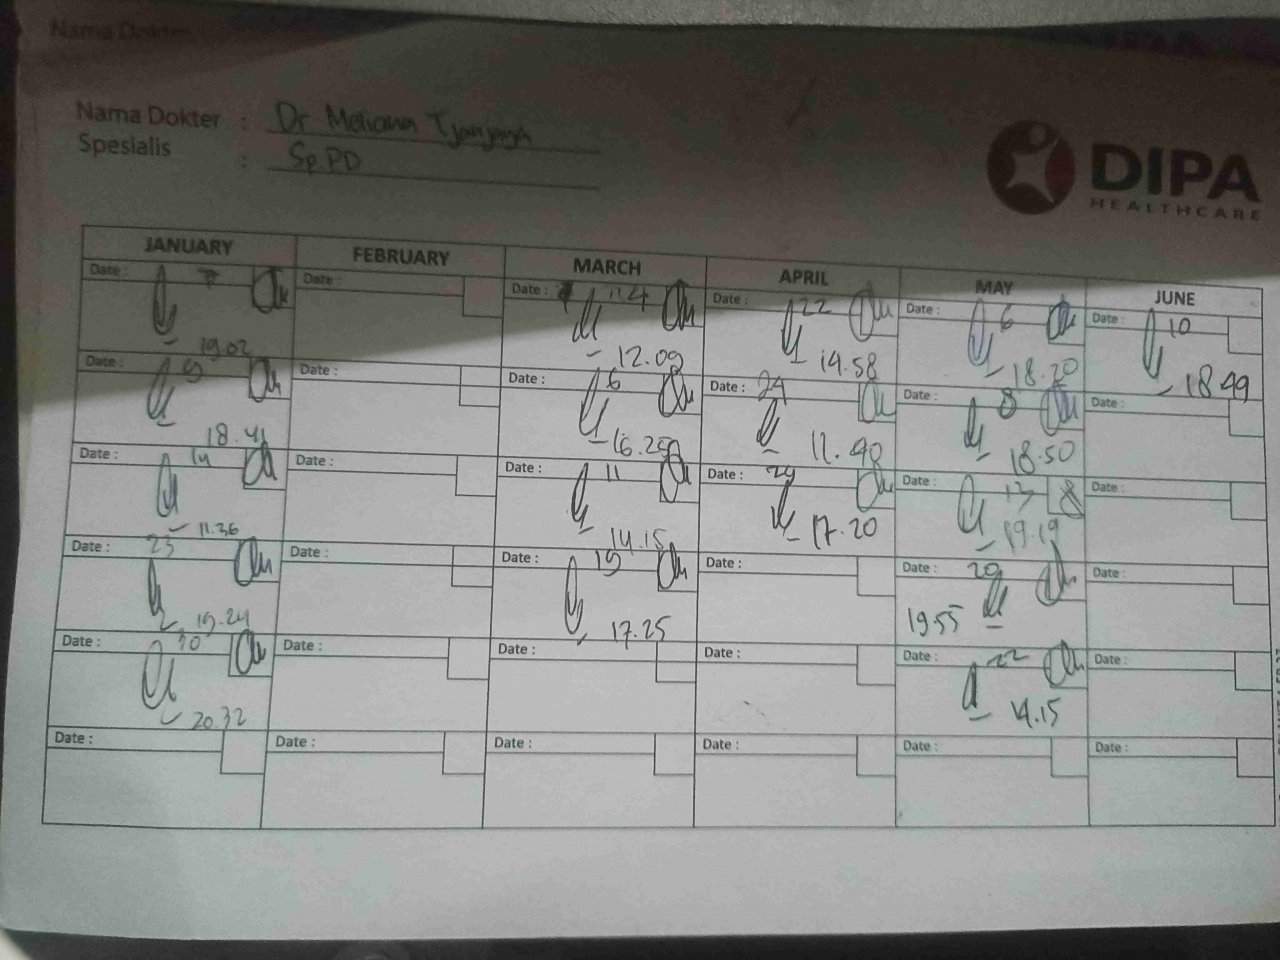 Nama Dokter
Nama Dokter : Dr Meliana
Spesialis : Sp.PD
DIPA
HEALTHCARE
JANUARY FEBRUARY MARCH APRIL MAY JUNE
Date : 7 Date : Date : 4 Date : 22 Date : 6 Date : 10
19.02 12.09 14.58 18.20 18.49
Date : 9 Date : Date : 6 Date : 24 Date : 8 Date :
18.41 16.25 11.40 18.50
Date : 14 Date : Date : 11 Date : 29 Date : 13 Date :
11.36 14.15 17.20 19.19
Date : 23 Date : Date : 19 Date : Date : 20 Date :
19.24 17.25 19.55
Date : 30 Date : Date : Date : Date : 22 Date :
20.32 14.15
Date : Date : Date : Date : Date : Date :